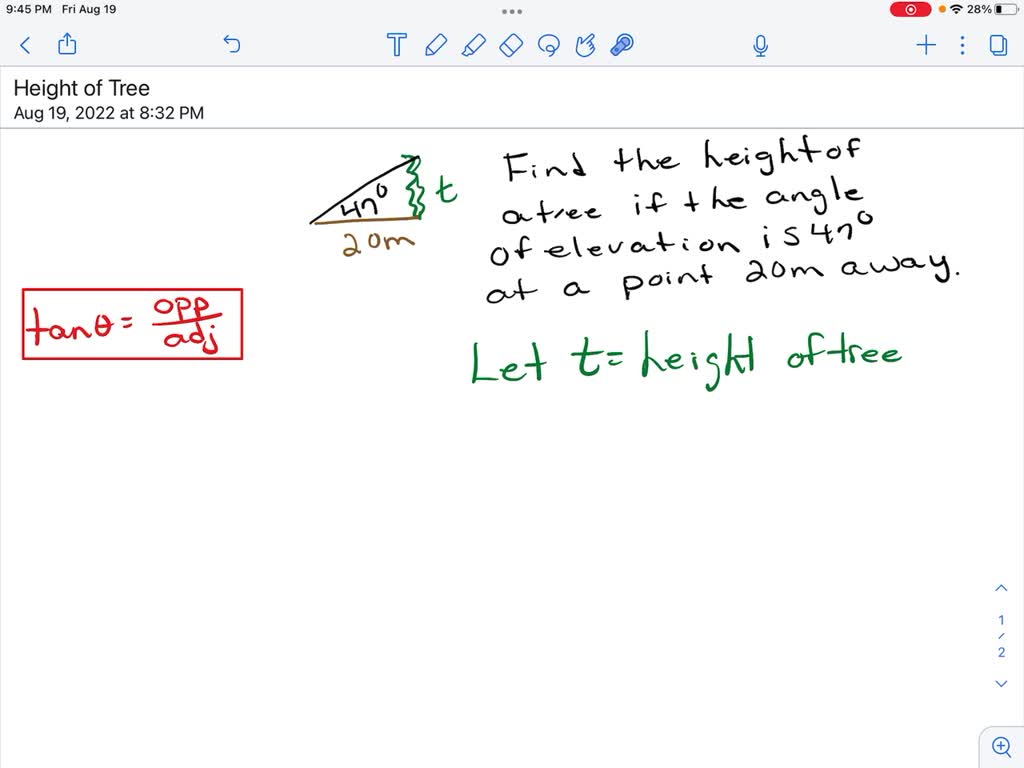 9:45 PM Fri Aug 19
28%
T
Height of Tree
Aug 19, 2022 at 8:32 PM
Find the height of
a tree if the angle
of elevation is 47°
at a point 20m away.
47°
t
20m
tanθ = opp/adj
Let t = height of tree
1
/
2